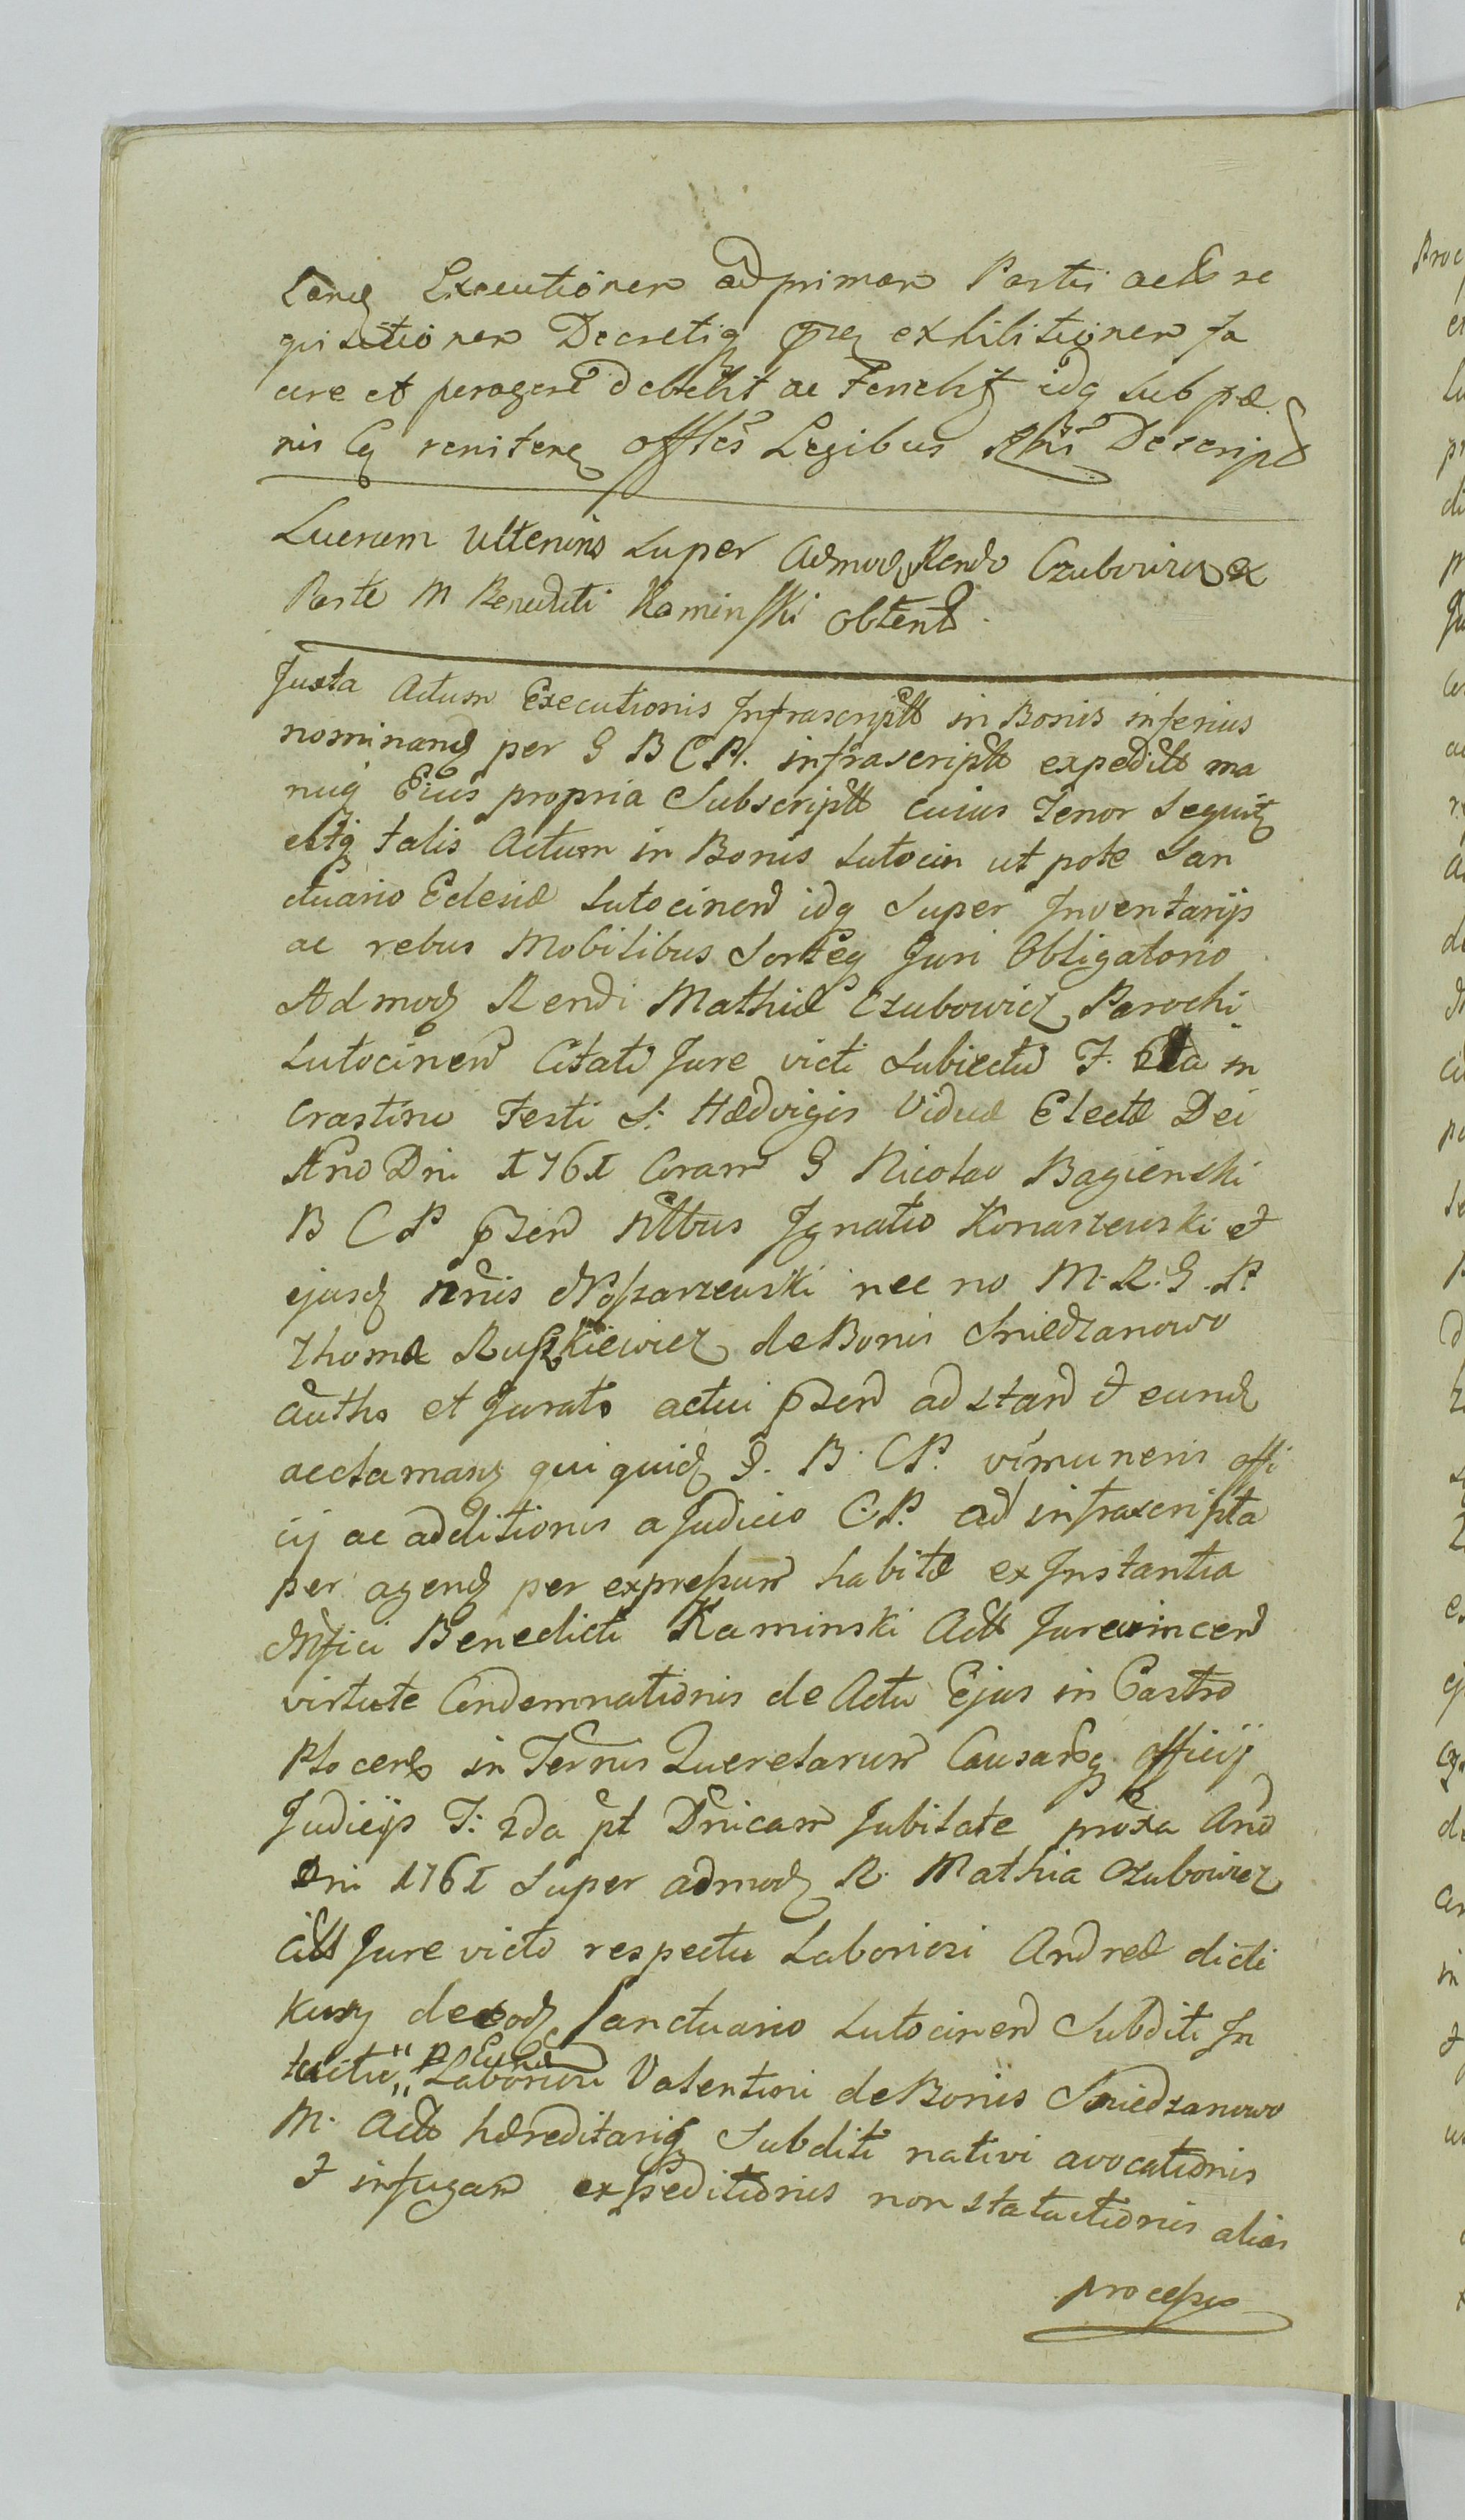 Executionem ad primam Partis
quisitionem Decretiq exhibitionem fa
cere et peragere debebit ac Tenebit idq sub pæ
nis Legibus Descript
Lucrum Ulterius Super Admod Rendo Czubowicz ex
Parte M Benedicti Kaminski obtent
Juxta Actum Executionis Infrascriptt in Bonis inferius
nominand per G B C P. infrascriptt expeditt ma
nuq Eius propria Subscriptt cuius Tenor Sequit
estq talis Actum in Bonis Lutocin ut pote San
ctuario Eclesiæ Lutocinen idq Super Inventarijs
ac rebus Mobilibus Sorteq Juri Obligatorio
Admod Rendi Mathiæ Czubowicz Parochi
Lutocinen Citati Jure victi Subiectis F. in
Crastino Festi S. Hædvigis Viduæ Electæ Dei
Ano Dni 1761 Coram G Nicolao Bagienski
B C P pzen Nttbus Ignatio Konaszewski et
ejusd nnis nec no M. R. G. P.
Thoma Ruszkiewicz de Bonis Sniedzanowo
autho et Jurato actui pzen adstan et eund
acclamanq qui quid G. B. C P. vi muneris offi
cij ac additionis a Judicio C. P. ad infrascripta
per agend per expressum habitæ ex Instantia
Mfici Benedicti Kaminski Actt Jurevincen
virtute Condemnationis de Actu Ejus in Castro
Plocen in Termis Querelarum Causarq officij
Judicijs F. 2da pt Dnicam Jubilate proxa Ano
Dni 1761 Super admod R. Mathia Czubowicz
citt Jure victo respectu Laboriosi Andreæ dicti
de eod Sanctuario Lutocinen Subditi In
Laboriosi Valentini de Bonis Sniedzanowo
M. Actt hæreditariq Subditi nativi avocationis
et in fugam expeditionis non statuitionis alias
processus